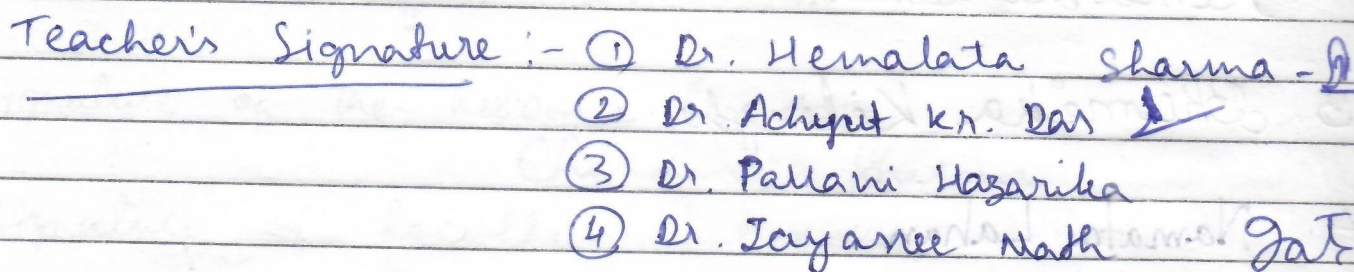 Teacher's Signature :- ① Dr. Hemalata Sharma -
② Dr. Achyut Kr. Das
③ Dr. Pallavi Hazarika
④ Dr. Jayasree Nath